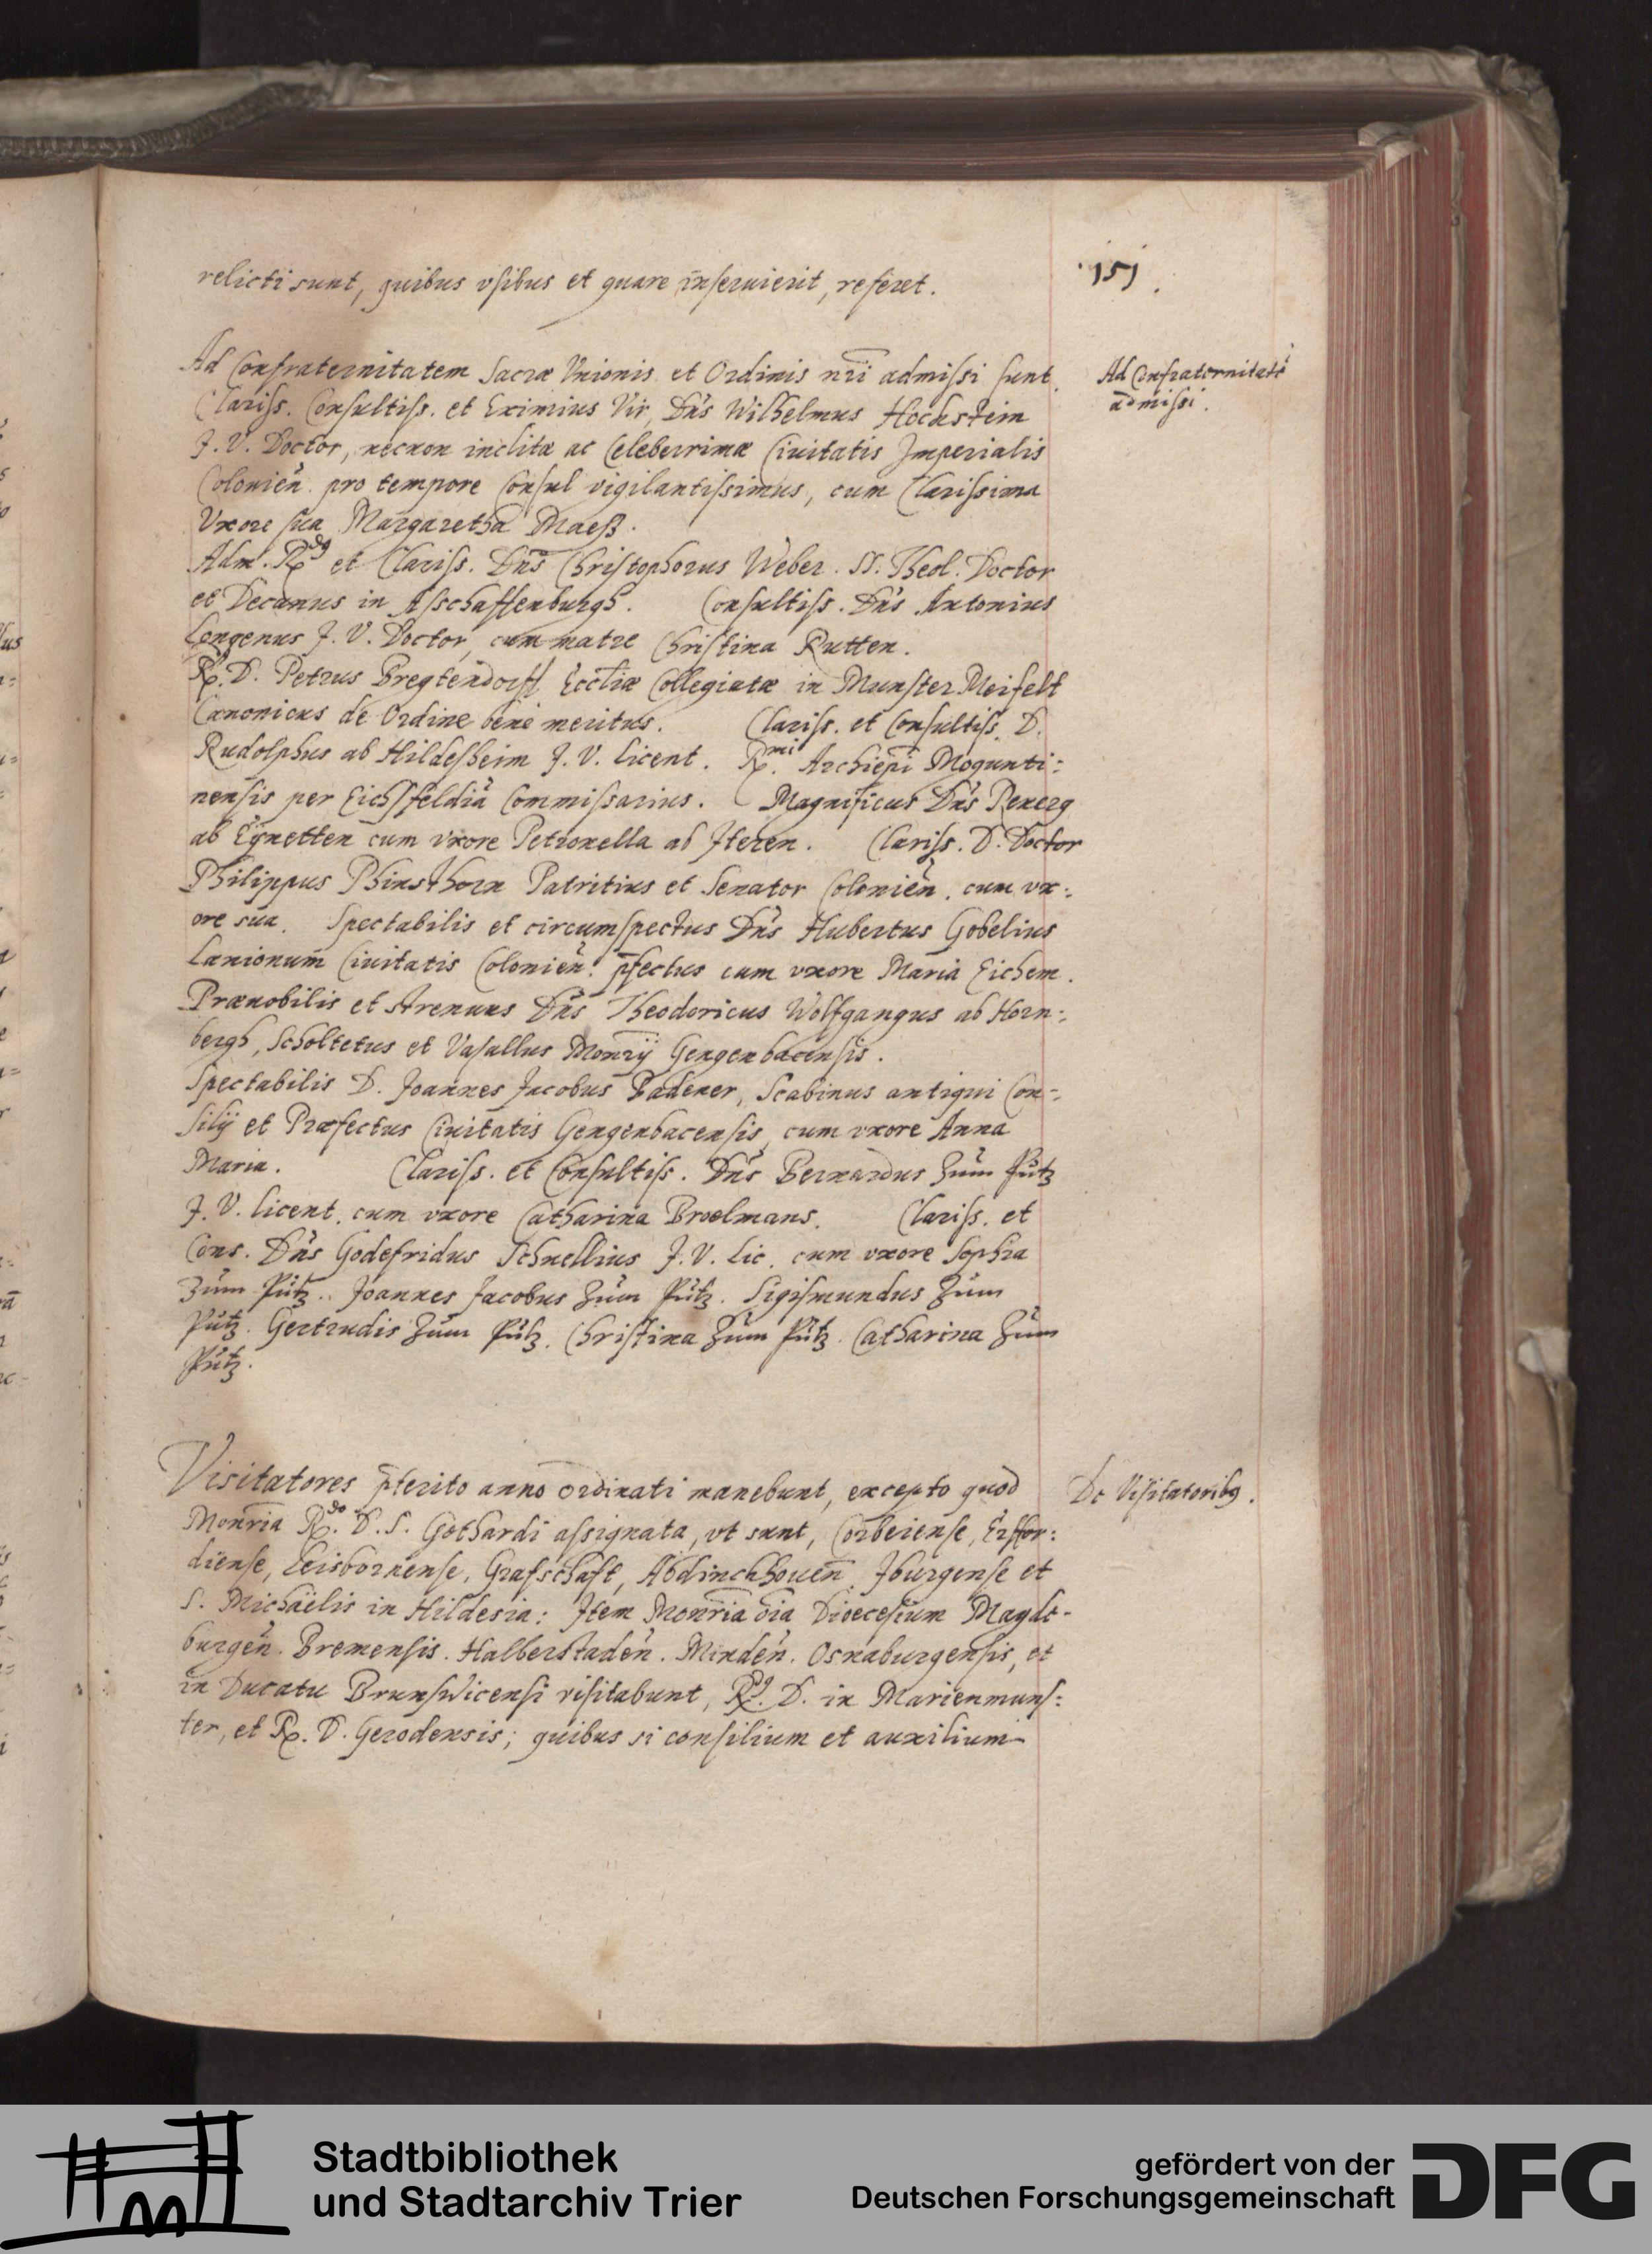 151
relicti sunt, quibus vsibus et quare inseruierit, referet.
Ad Confraternitatem Sacræ Vnionis et Ordinis nr̄i admissi sunt
Ad Confraternitatē
admissi.
Clariss. Consultiss. et Eximius Vir, Dn̄s Wilhelmus Hochstein
J. V. Doctor, necnon inclitæ ac Celeberrimæ Ciuitatis Imperialis
Colonien̄. pro tempore Consul vigilantissimus, cum Clarissima
Vxore sua Margaretha Maeß.
Adm. Rdg et Clariss. Dn̄s Christophorus Weber. SS. Theol. Doctor
et Decanus in Asschaffenburgh. Consultiss. Dn̄s Antonius
Longenus J. V. Doctor, cum matre Christina Rutten.
R. D. Petrus Bregtendorff Eccliæ Collegiatæ in Munster Meifelt
Canonicus de Ordine bene meritus. Clariss. et Consultiss. D.
Rudolphus ab Hildesheim J. V. Licent. Rmi. Archiepi Mogunti:
nensis per Eichsfeldiā Commissarius. Magnificus Dn̄s Renerg
ab Eÿnetten cum vxore Petronella ab Iteren. Clariss. D. Doctor
Philippus Phinsthorn Patritius et Senator Colonien̄. cum vx:
ore sua. Spectabilis et circumspectus Dn̄s Hubertus Gobelius
Lanionum Ciuitatis Colonien̄. p̄fectus cum vxore Maria Eichem.
Prænobilis et strenuus Dn̄s Theodoricus Wolfgangus ab Horn:
bergh, Scholtetus et Vasallus Monrīj Gengenbacensis.
Spectabilis D. Joannes Jacobus Badener, Scabinus antiqui Con:
silij et Præfectus Ciuitatis Gengenbacensis, cum vxore Anna
Maria. Clariss. et Consultiss. Dn̄s Bernardus Zum Pütz
J. V. Licent. cum vxore Catharina Broelmans. Clariss. et
Cons. Dn̄s Godefridus Schnellius J. V. Lic. cum vxore Sophia
Zum Pütz. Joannes Jacobus Zum Pütz. Sigismundus Zum
Pütz. Gertrudis Zum Pütz. Christina Zum Pütz. Catharina Zum
Pütz.
Visitatores p̄terito anno ordinati manebunt, excepto quod
De Visitatoribg.
Monrīa Rdo. D. S. Gothardi assignata, vt sunt, Corbeiense, Erffor:
diense, Leisbornense, Grafschaft, Abdinckhouen̄. Iburgense et
S. Michaëlis in Hildesia: Item Monrīa oīa Diœcesium Magde-
burgen̄. Bremensis. Halberstaden̄. Minden̄. Osnaburgensis, et
in Ducatu Brunswicensi visitabunt, R. D. in Marienmuns:
ter, et R. D. Gerodensis; quibus si consilium et auxilium
Stadtbibliothek
und Stadtarchiv Trier
gefördert von der
Deutschen Forschungsgemeinschaft
DFG